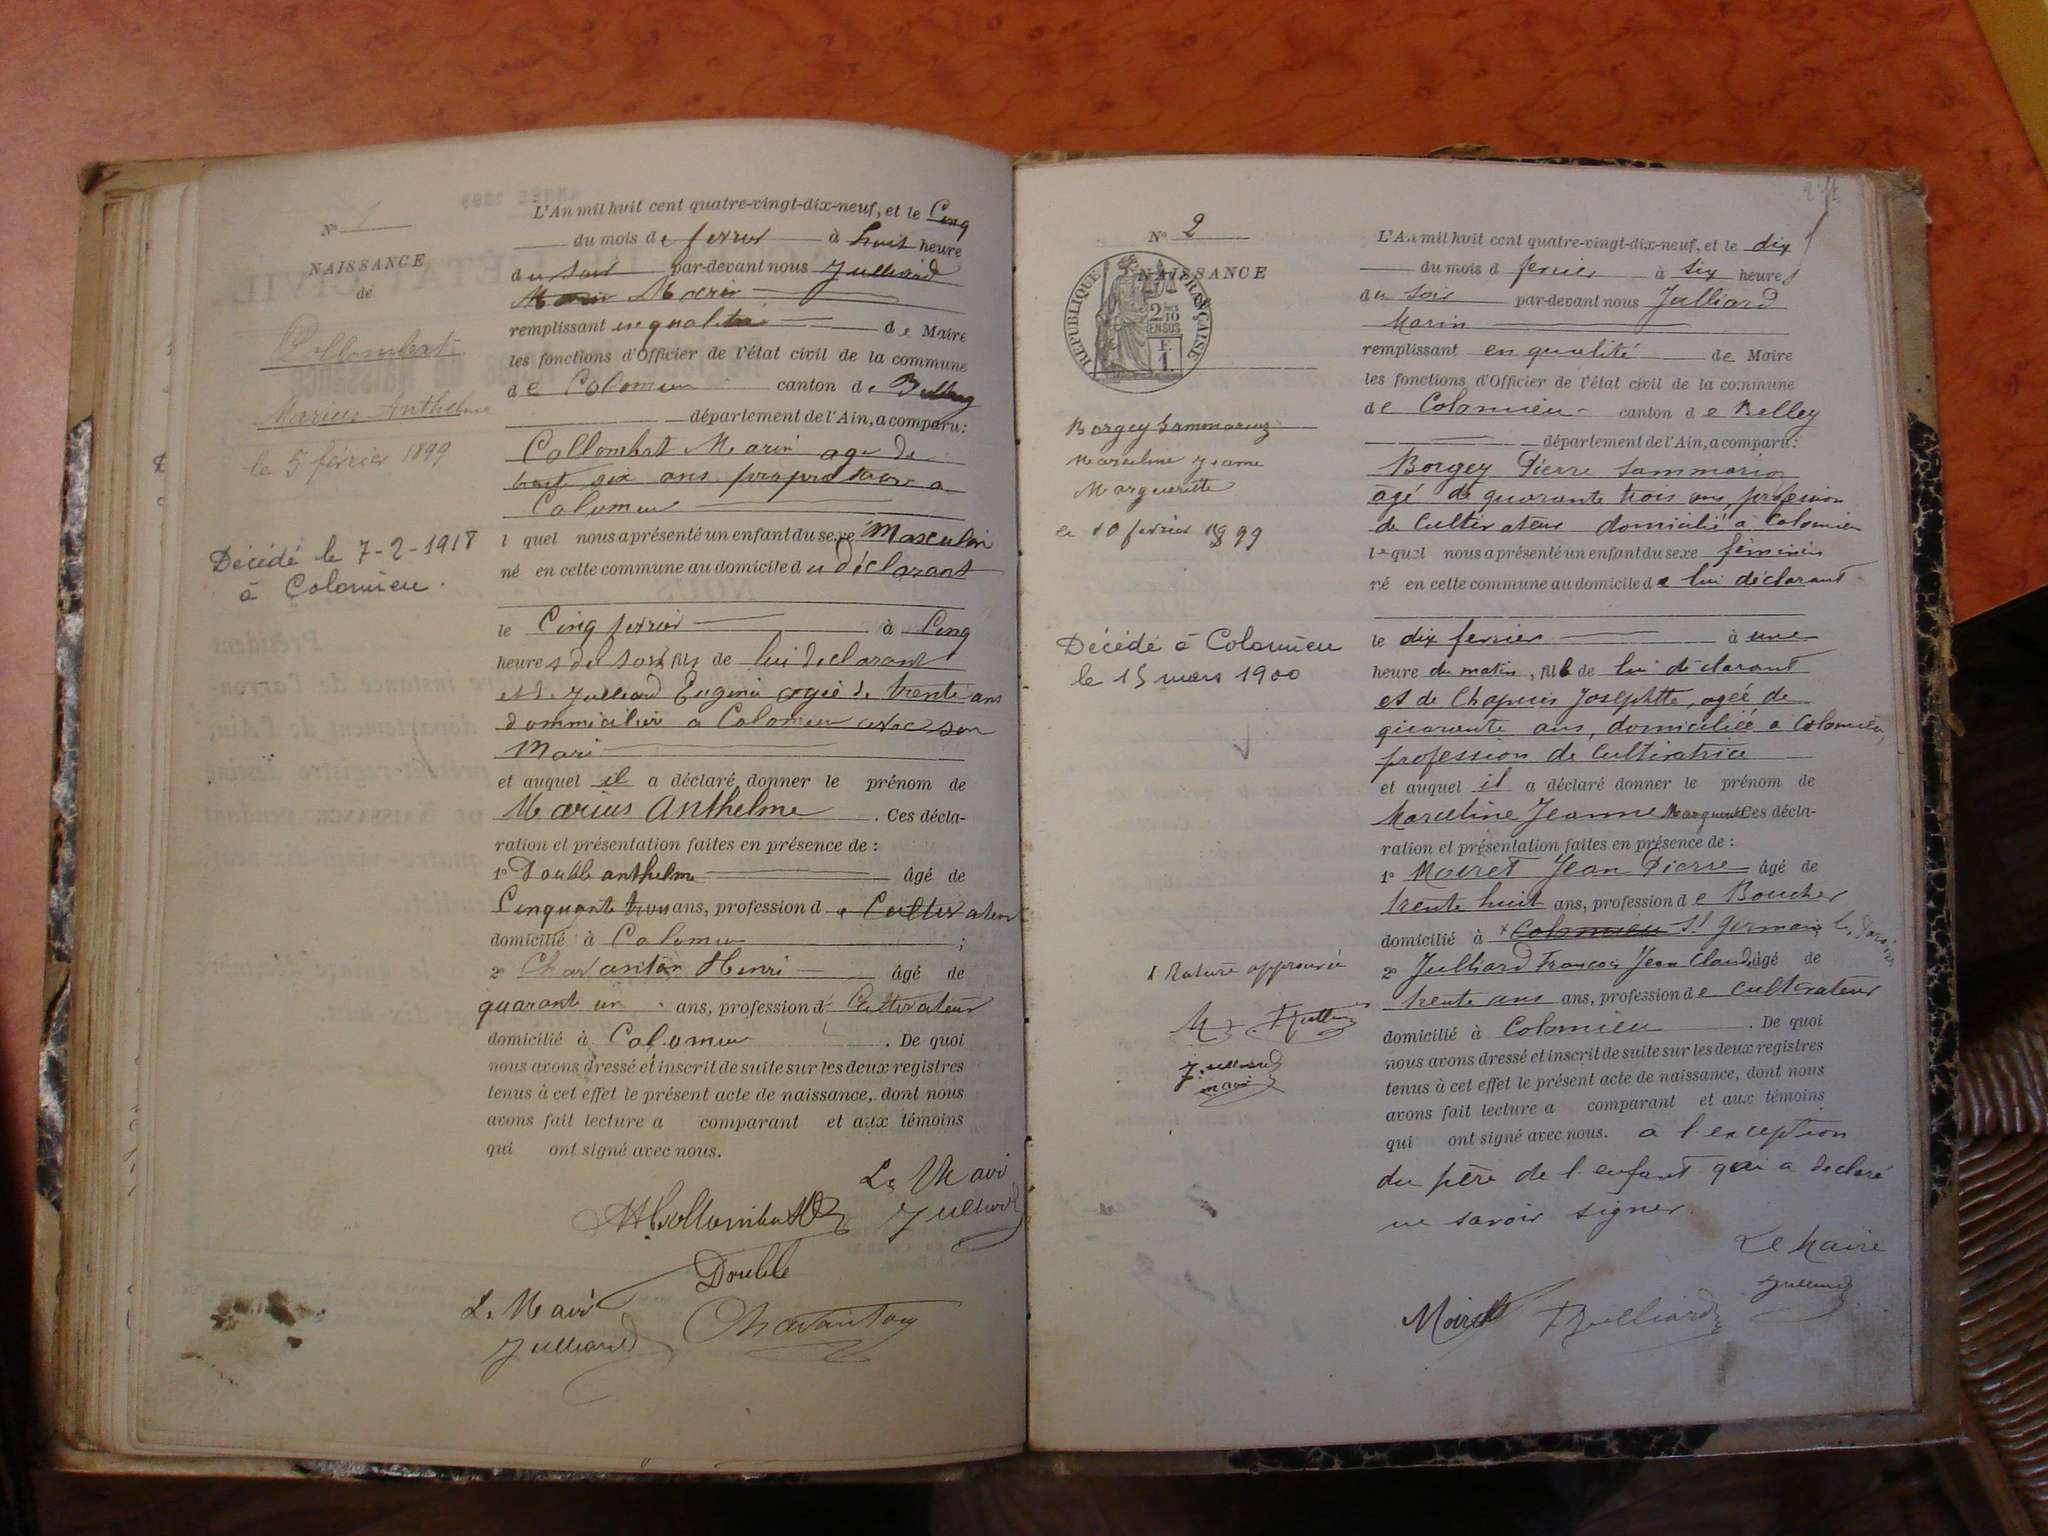 N° 1
NAISSANCE
de
Collombat
Marius Anthelme
le 5 février 1899
Décédé le 7-2-1918
à Colomieu.
L'An mil huit cent quatre-vingt-dix-neuf, et le Cinq
du mois de fevrier à huit heure
du soir par-devant nous Julliard
Marin Marin
remplissant en qualité de Maire
les fonctions d'Officier de l'état civil de la commune
de Colomieu canton de Belley
département de l'Ain, a comparu:
Collombat Marin age de
trent six ans propriétaire a
Colomieu
l quel nous a présenté un enfant du sexe Masculin
né en cette commune au domicile du déclarant
le Cinq fevrier à Cinq
heures du soir, fils de lui declarant
et de Julliard Eugenie agée de trente ans
dommicilier a Colomieu avec son
Mari
et auquel il a déclaré donner le prénom de
Marius Anthelme . Ces décla-
ration et présentation faites en présence de :
1° Double anthelme âgé de
Cinquante trois ans, profession de Cultivateur
domicilié à Colomieu ;
2° Charanton Henri âgé de
quarant un ans, profession de Cultivateur
domicilié à Colomieu . De quoi
nous avons dressé et inscrit de suite sur les deux registres
tenus à cet effet le présent acte de naissance, dont nous
avons fait lecture a comparant et aux témoins
qui ont signé avec nous.
Le Mair
Collombat Julliard
Double
Le Mair
Julliard
N° 2
NAISSANCE
RÉPUBLIQUE FRANÇAISE
2/10
EN SUS
Borgey Sammarioz
Marceline Jeanne
Marguerite
le 10 fevrier 1899
Décédé à Colomieu
le 15 mars 1900
X Rature approuvée
Julliard
maire
L'An mil huit cent quatre-vingt-dix-neuf, et le dix
du mois d fevrier à six heures
du soir par-devant nous Julliard
Marin
remplissant en qualité de Maire
les fonctions d'Officier de l'état civil de la commune
de Colomieu canton de Belley
département de l'Ain, a comparu:
Borgey Pierre Sammarioz
âgé de quarante trois ans, profession
de Cultivateur domicilié à Colomieu
lequel nous a présenté un enfant du sexe féminin
né en cette commune au domicile de lui déclarant
le dix fevrier à une
heure du matin, fille de lui déclarant
et de Chapuis Josephtte, agée de
quarante ans, domiciliée a Colomieu,
profession de Cultivatrice
et auquel il a déclaré donner le prénom de
Marceline Jeanne Marguerite Ces décla-
ration et présentation faites en présence de :
1° Moiret Jean Pierre âgé de
trente huit ans, profession de Boucher
domicilié à x Colomieu St Germain les Paroisses
2° Julliard François Jean Claude âgé de
trente ans ans, profession de cultivateur
domicilié à Colomieu . De quoi
nous avons dressé et inscrit de suite sur les deux registres
tenus à cet effet le présent acte de naissance, dont nous
avons fait lecture a comparant et aux témoins
qui ont signé avec nous. à l'exception
du père de l'enfant qui a declaré
ne savoir signer.
Le Maire
Julliard
Moiret FJulliard